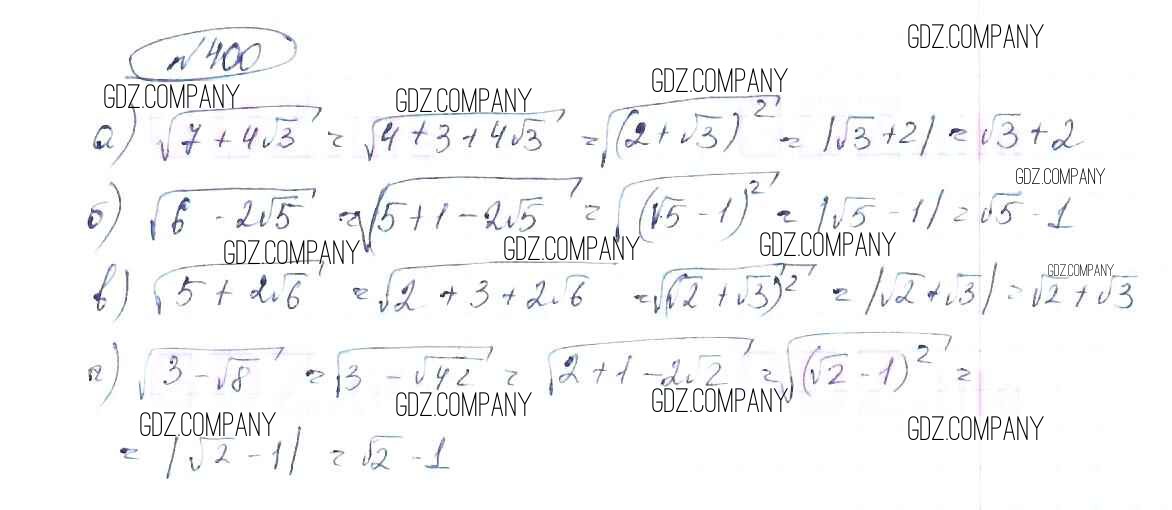 № 400
GDZ.COMPANY
GDZ.COMPANY
GDZ.COMPANY GDZ.COMPANY
а) √(7 + 4√3) = √(4 + 3 + 4√3) = √((2 + √3)²) = |√3 + 2| = √3 + 2
GDZ.COMPANY
б) √(6 - 2√5) = √(5 + 1 - 2√5) = √((√5 - 1)²) = |√5 - 1| = √5 - 1
GDZ.COMPANY GDZ.COMPANY GDZ.COMPANY
GDZ.COMPANY
в) √(5 + 2√6) = √(2 + 3 + 2√6) = √((√2 + √3)²) = |√2 + √3| = √2 + √3
г) √(3 - √8) = √(3 - √(4·2)) = √(2 + 1 - 2√2) = √((√2 - 1)²) =
GDZ.COMPANY GDZ.COMPANY GDZ.COMPANY GDZ.COMPANY
= |√2 - 1| = √2 - 1